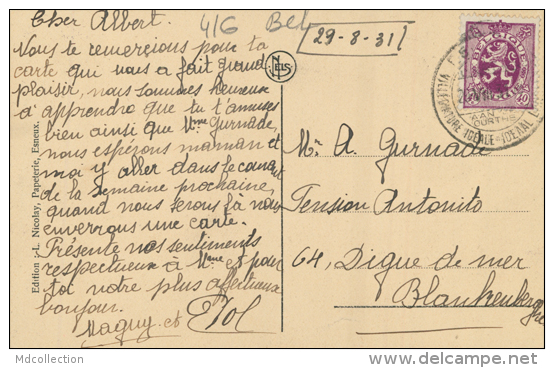 Cher Albert.
Nous te remercions pour ta
carte qui nous a fait grand
plaisir, nous sommes heureux
d'apprendre que tu t'amuses
bien ainsi que Mme Gurnade,
nous espérons maman et
moi y aller dans le courant
de la semaine prochaine,
quand nous serons là nous
enverrons une carte.
Présente nos sentiments
respectueux à Mme et pour
toi notre plus affectueux
bonjour.
Maguy et
4/6 Bel
29-8-31
NELS
Edition : L. Nicolay, Papeterie, Esneux.
BELGIQUE
40
OURTHE
Mr A. Gurnade
Pension Antonito
64, Digue de mer
Blankenberghe
Mdcollection
www.delcampe.net